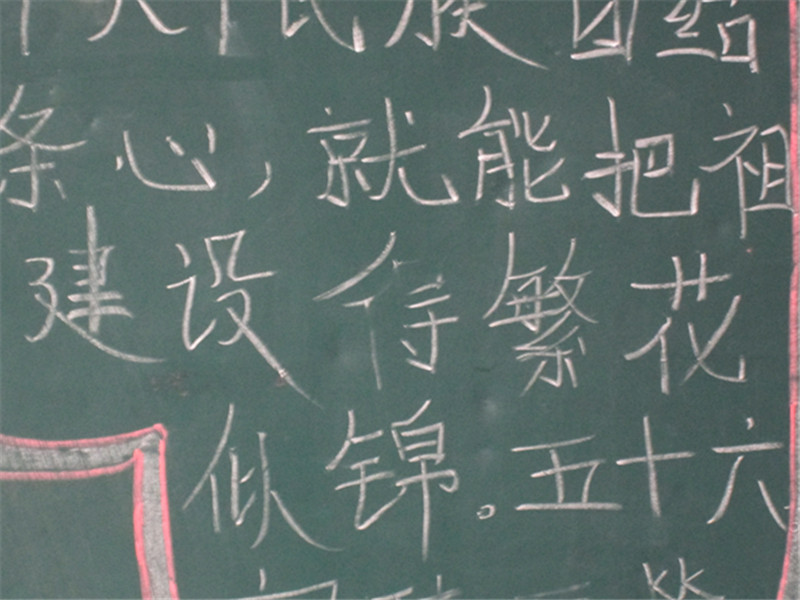 个民族团结
条心，就能把祖
建设得繁花
似锦。五十六